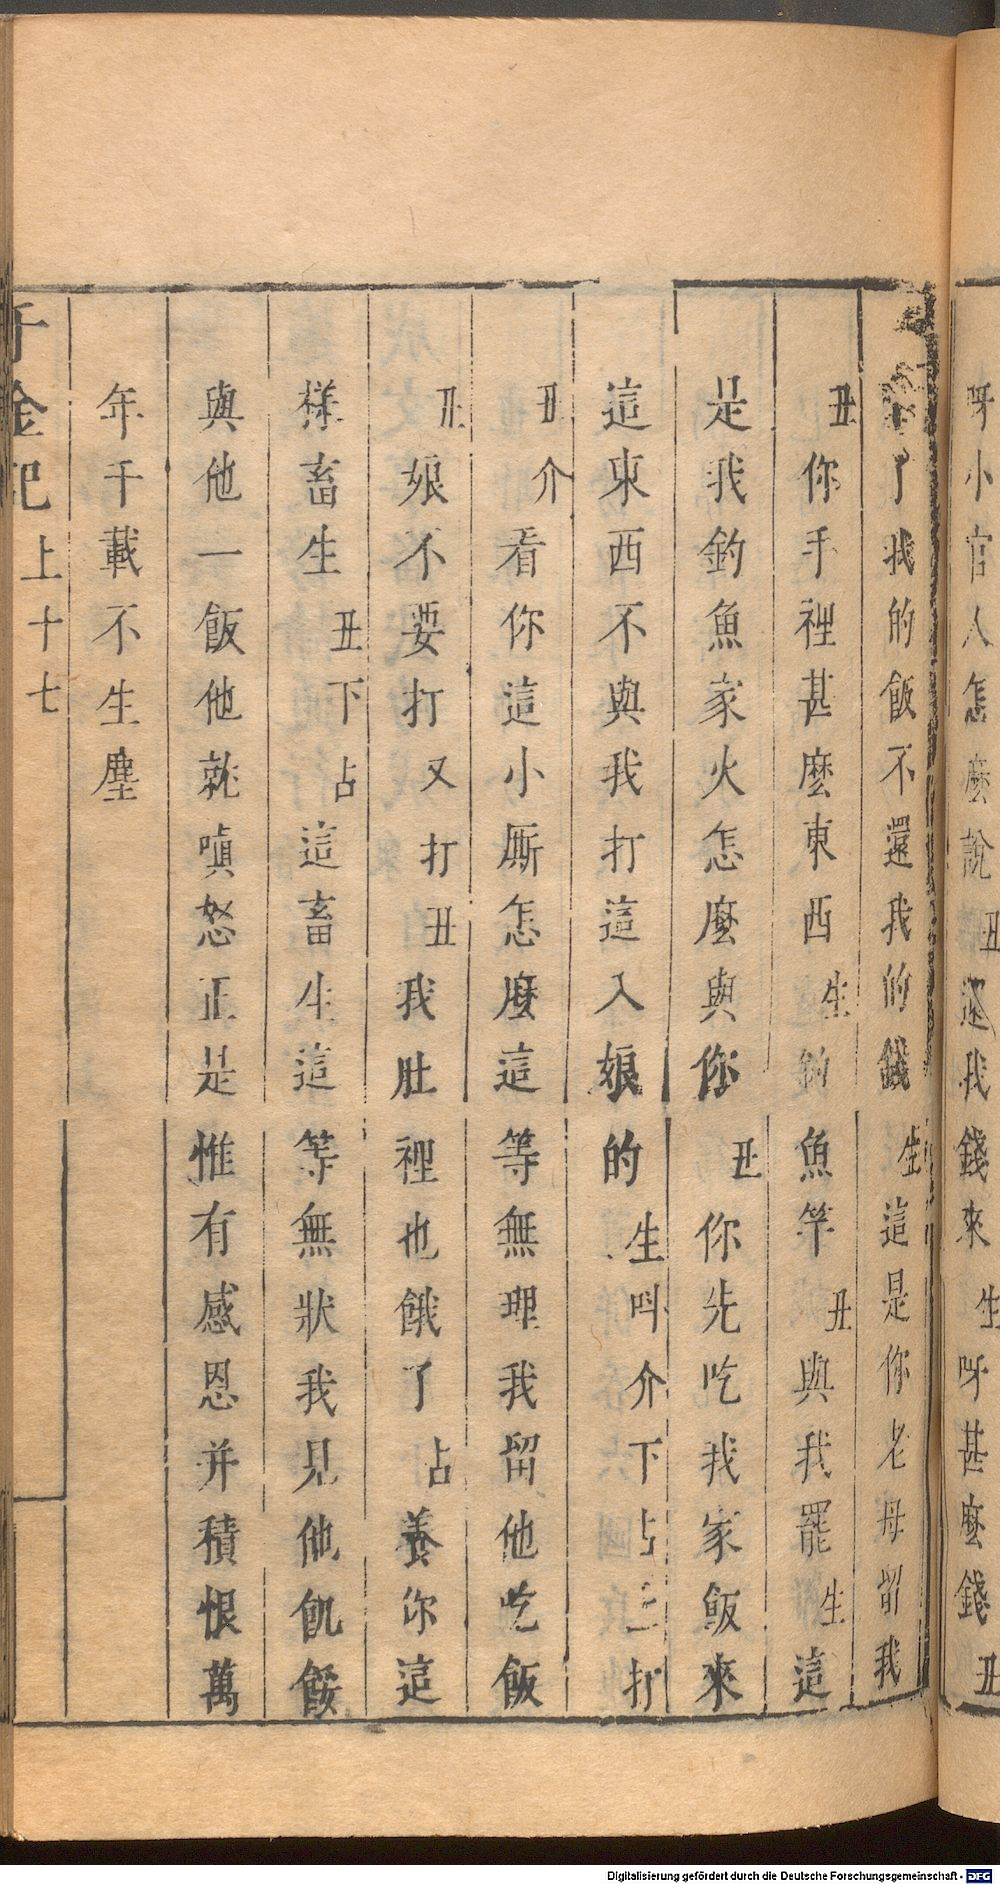 呀小官人怎麽說丑還我錢來生呀甚麽錢丑
了我的飯不還我的錢生這是你老母留我
丑你手裡甚麽東西生釣魚竿丑與我罷生這
是我釣魚家火怎麽與你丑你先吃我家飯來
這東西不與我打這入娘的生叫介下占上打
丑介看你這小厮怎麽這等無理我留他吃飯
丑娘不要打又打丑我肚裡也餓了占養你這
樣畜生丑下占這畜生這等無狀我見他飢餒
與他一飯他就嗔怒正是惟有感恩并積恨萬
年千載不生塵
千金記上十七
Digitalisierung gefördert durch die Deutsche Forschungsgemeinschaft - DFG